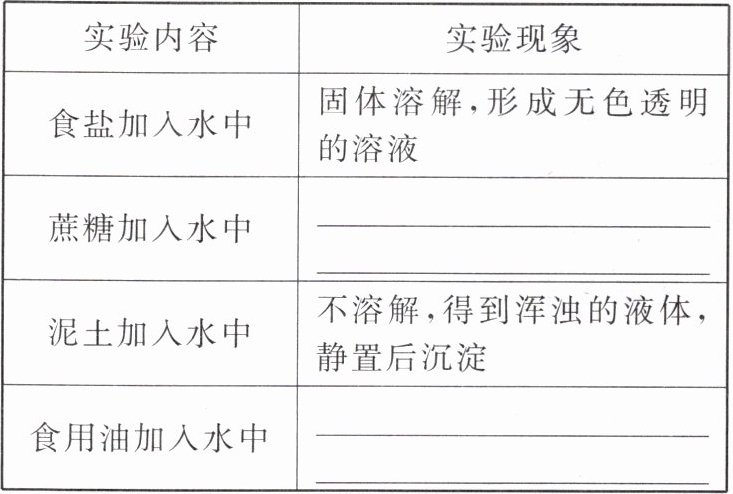 实验内容
实验现象
食盐加入水中
固体溶解,形成无色透明
的溶液
蔗糖加入水中
泥土加入水中
不溶解,得到浑浊的液体,
静置后沉淀
食用油加入水中